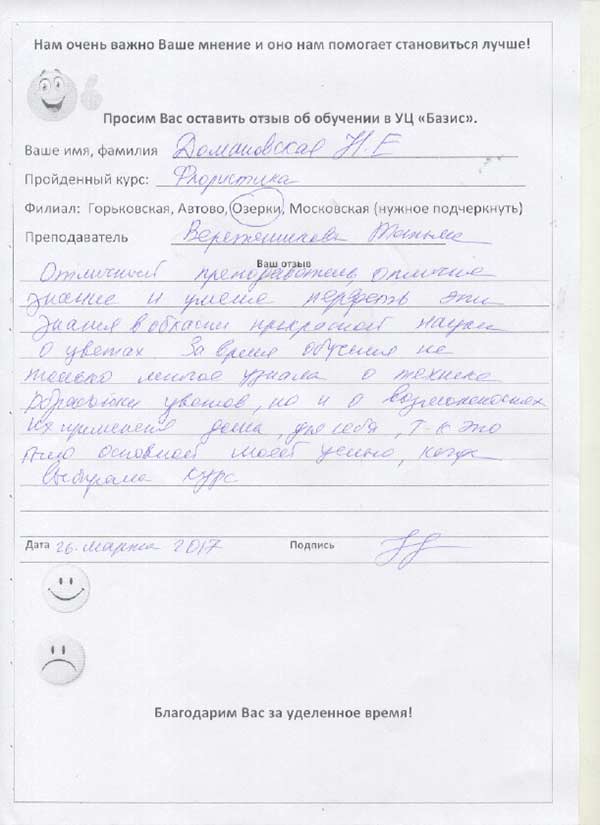 Нам очень важно Ваше мнение и оно нам помогает становиться лучше!
Просим Вас оставить отзыв об обучении в УЦ «Базис».
Ваше имя, фамилия Домановская Н.Е
Пройденный курс: Флористика
Филиал: Горьковская, Автово, Озерки, Московская (нужное подчеркнуть)
Преподаватель Веретенникова Татьяна
Ваш отзыв
Отличный преподаватель, отличное
знание и умение передать эти
знания в области прекрасной науки
о цветах За время обучения не
только многое узнала о технике
обработки цветов, но и о возможностях
их применения дома, для себя, т-к это
было основной моей целью, когда
выбирала курс
Дата 26. марта 2017 Подпись
Благодарим Вас за уделенное время!